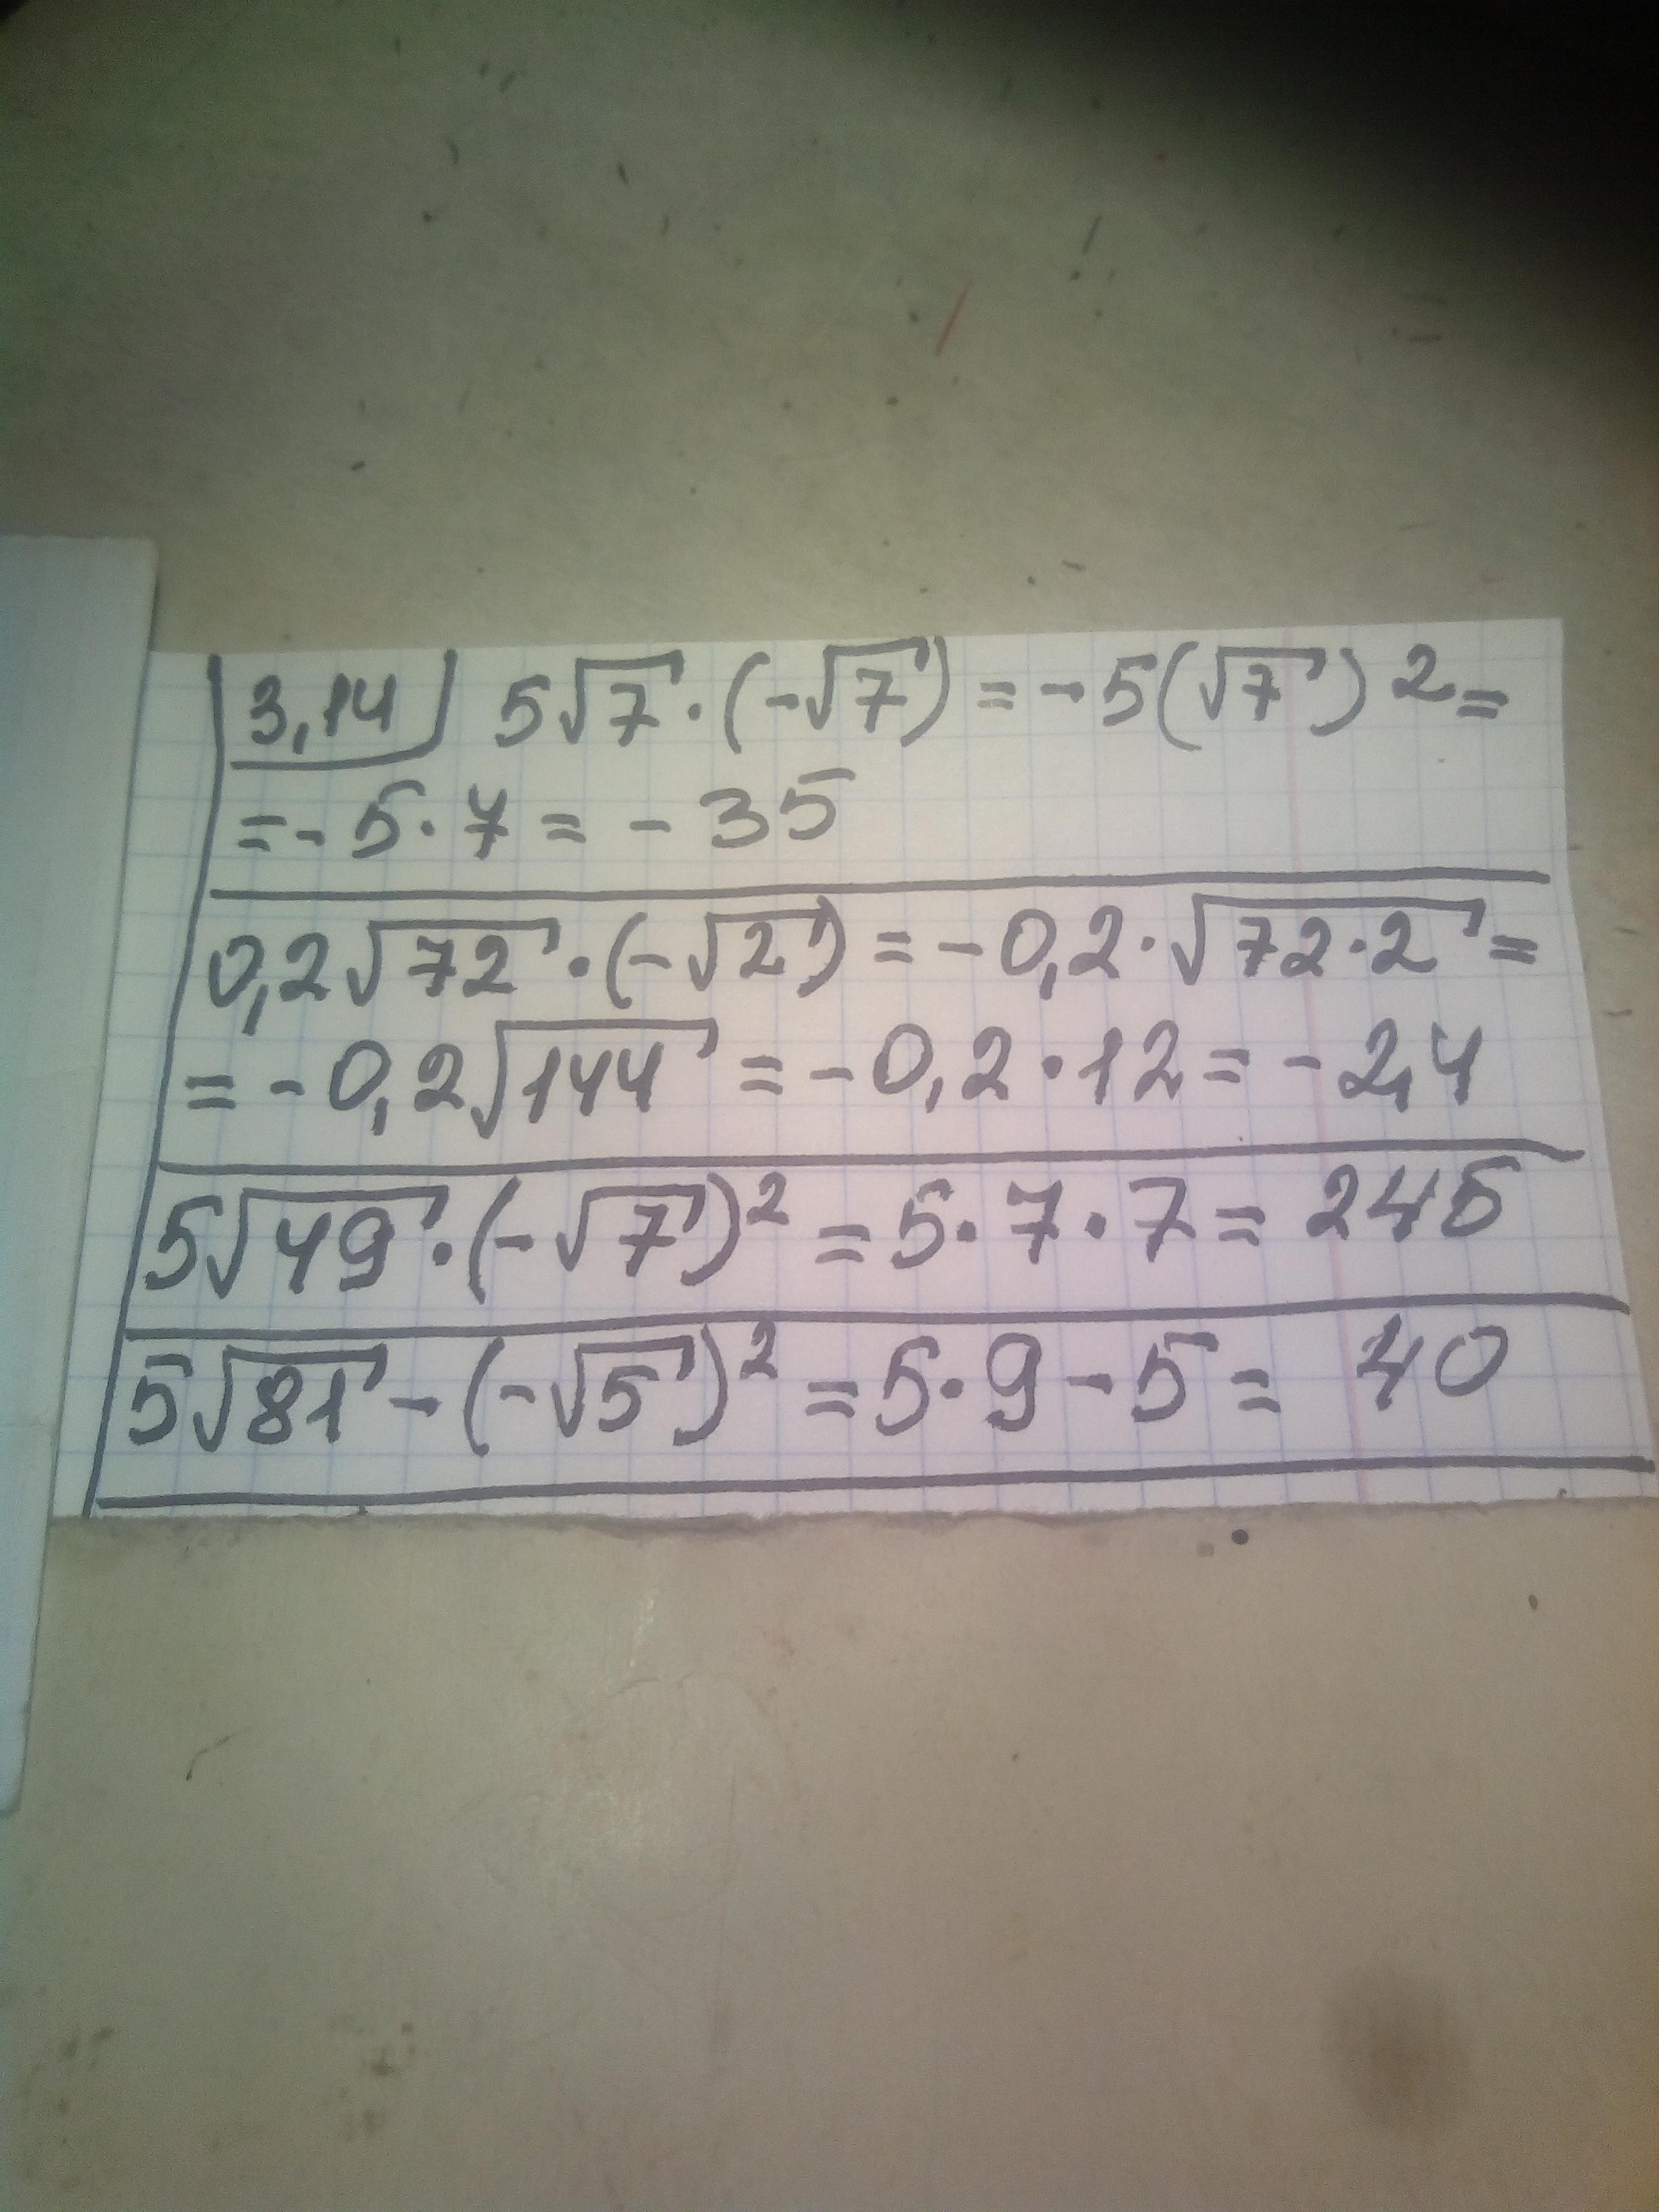 3,14 5√7·(-√7)=-5(√7)²=
=-5·7=-35
0,2√72·(-√2)=-0,2·√72·2=
=-0,2√144=-0,2·12=-2,4
5√49·(-√7)²=5·7·7=245
5√81-(-√5)²=5·9-5=40